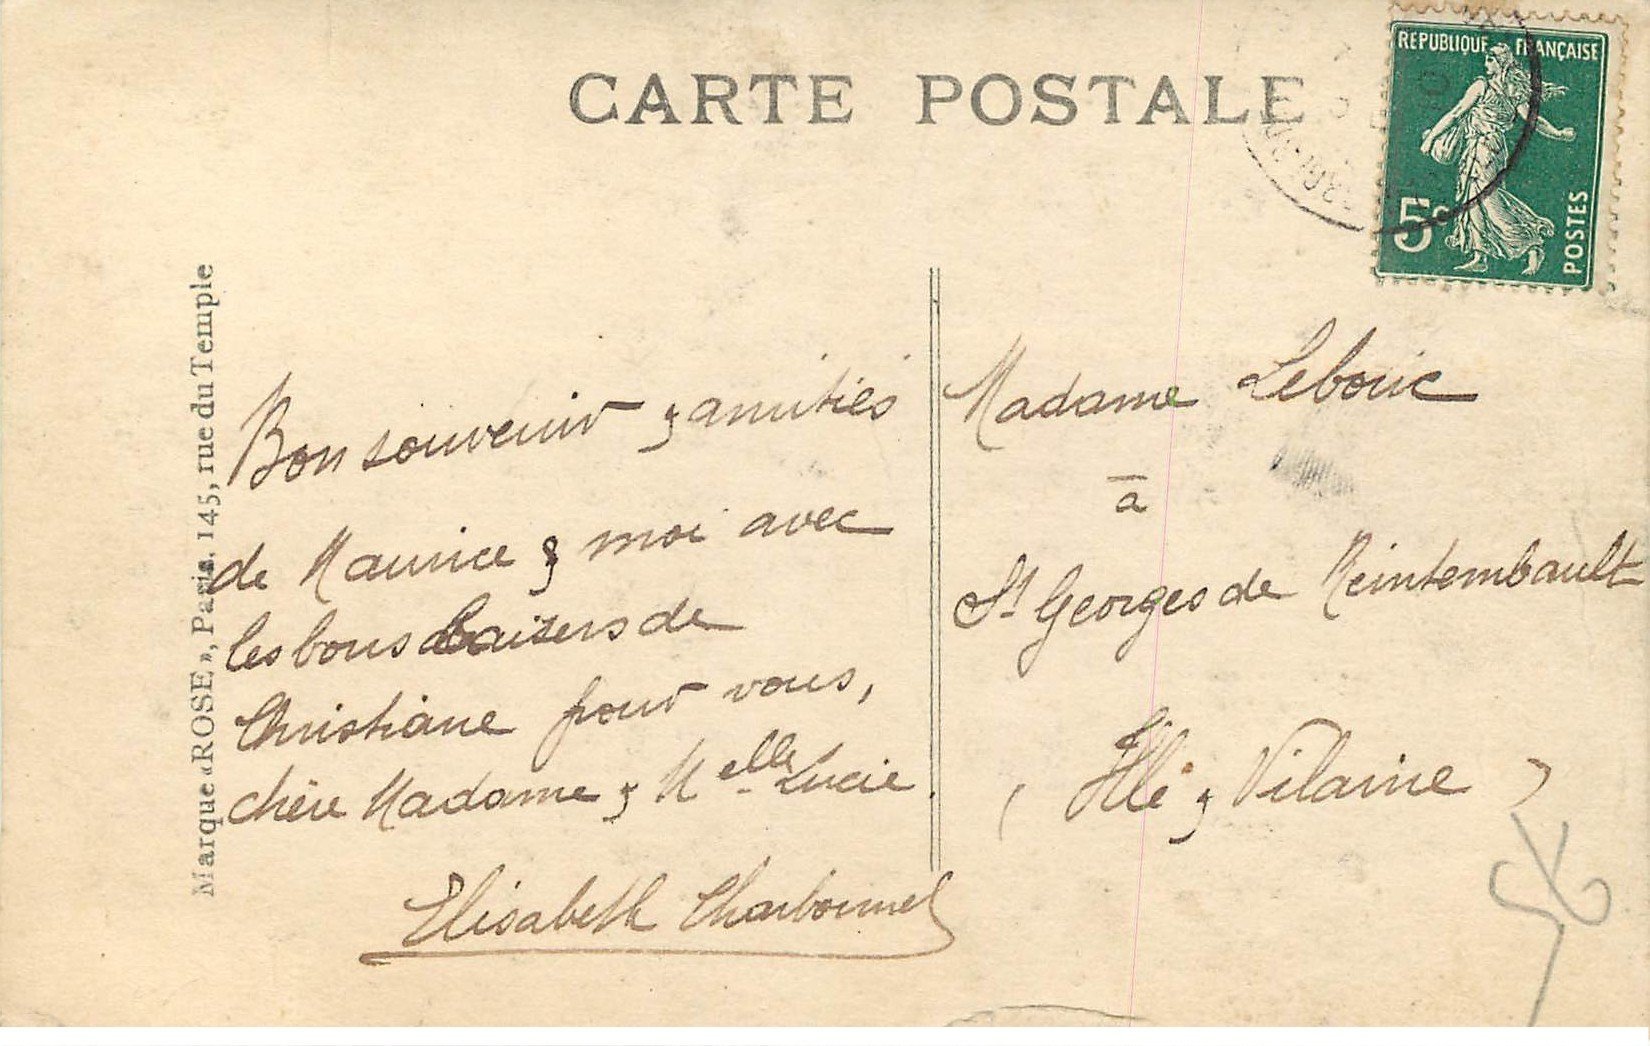 CARTE POSTALE
REPUBLIQUE FRANÇAISE
5c
POSTES
Marque « ROSE », Paris. 145, rue du Temple
Bon souvenir & amitiés
de Maurice & moi avec
les bons baisers de
Christiane pour vous,
chère Madame & Melle Lucie.
Elisabeth Charbonnel
Madame Lebouc
à
St Georges de Reintembault
( Ille & Vilaine )